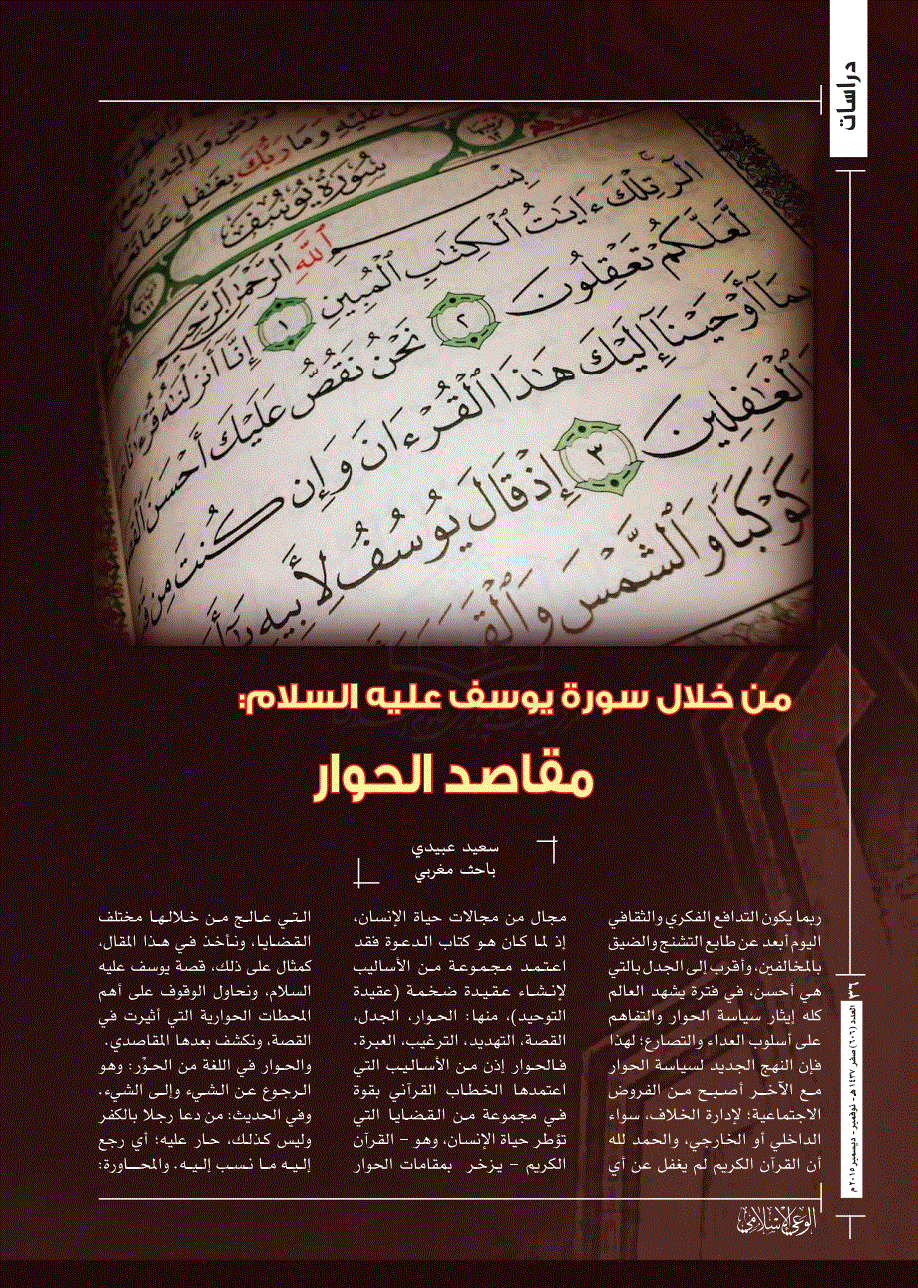 دراسات
سُورَةُ يُوسُفَ
بِسْمِ اللَّهِ الرَّحْمَٰنِ الرَّحِيمِ
الٓر تِلْكَ ءَايَٰتُ ٱلْكِتَٰبِ ٱلْمُبِينِ ١ إِنَّآ أَنزَلْنَٰهُ قُرْءَٰنًا
لَّعَلَّكُمْ تَعْقِلُونَ ٢ نَحْنُ نَقُصُّ عَلَيْكَ أَحْسَنَ
بِمَآ أَوْحَيْنَآ إِلَيْكَ هَٰذَا ٱلْقُرْءَانَ وَإِن كُنتَ مِن
ٱلْغَٰفِلِينَ ٣ إِذْ قَالَ يُوسُفُ لِأَبِيهِ
كَوْكَبًا وَٱلشَّمْسَ
من خلال سورة يوسف عليه السلام:
مقاصد الحوار
سعيد عبيدي
باحث مغربي
ربما يكون التدافع الفكري والثقافي
اليوم أبعد عن طابع التشنج والضيق
بالمخالفين، وأقرب إلى الجدل بالتي
هي أحسن، في فترة يشهد العالم
كله إيثار سياسة الحوار والتفاهم
على أسلوب العداء والتصارع؛ لهذا
فإن النهج الجديد لسياسة الحوار
مع الآخر أصبح من الفروض
الاجتماعية؛ لإدارة الخلاف، سواء
الداخلي أو الخارجي، والحمد لله
أن القرآن الكريم لم يغفل عن أي
مجال من مجالات حياة الإنسان،
إذ لما كان هو كتاب الدعوة فقد
اعتمد مجموعة من الأساليب
لإنشاء عقيدة ضخمة (عقيدة
التوحيد)، منها: الحوار، الجدل،
القصة، التهديد، الترغيب، العبرة.
فالحوار إذن من الأساليب التي
اعتمدها الخطاب القرآني بقوة
في مجموعة من القضايا التي
تؤطر حياة الإنسان، وهو – القرآن
الكريم – يزخر بمقامات الحوار
التي عالج من خلالها مختلف
القضايا، ونأخذ في هذا المقال،
كمثال على ذلك، قصة يوسف عليه
السلام، ونحاول الوقوف على أهم
المحطات الحوارية التي أثيرت في
القصة، ونكشف بعدها المقاصدي.
والحوار في اللغة من الحوْر: وهو
الرجوع عن الشيء وإلى الشيء.
وفي الحديث: من دعا رجلا بالكفر
وليس كذلك، حار عليه؛ أي رجع
إليه ما نسب إليه. والمحاورة:
٣٦
العدد (٦٠٦) صفر ١٤٣٧ هـ - نوفمبر - ديسمبر ٢٠١٥ م
الوعي الإسلامي